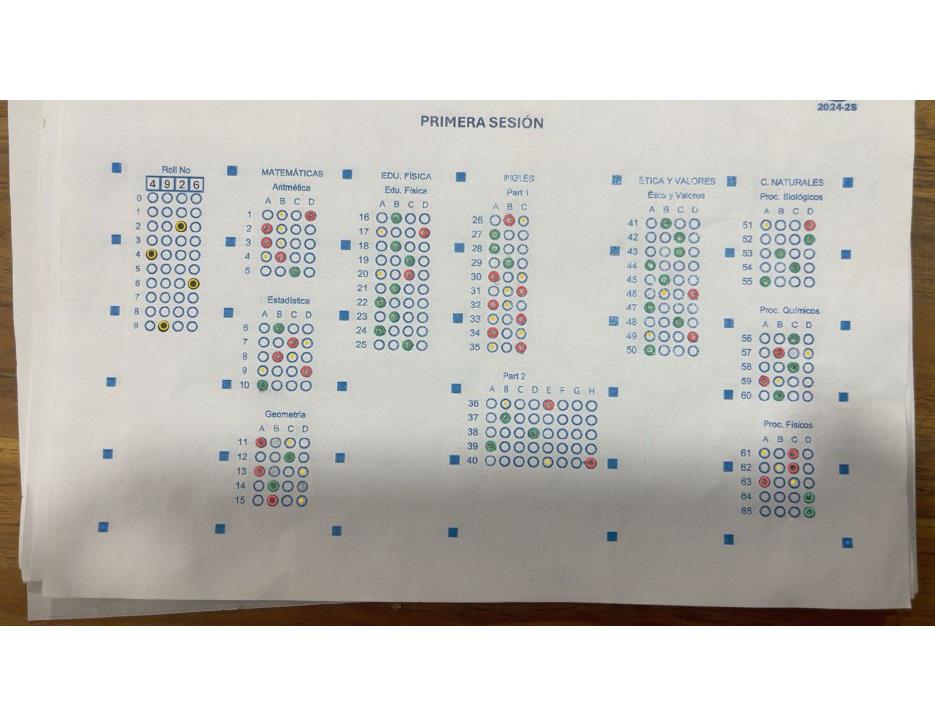 2024-25
PRIMERA SESIÓN
Roll No
4 9 2 6
0
1
2
3
4
5
6
7
8
9
MATEMÁTICAS
Aritmética
A B C D
1
2
3
4
5
Estadística
A B C D
6
7
8
9
10
Geometría
A B C D
11
12
13
14
15
EDU. FÍSICA
Edu. Física
A B C D
16
17
18
19
20
21
22
23
24
25
INGLÉS
Part 1
A B C
26
27
28
29
30
31
32
33
34
35
Part 2
A B C D E F G H
36
37
38
39
40
ÉTICA Y VALORES
Ética y Valores
A B C D
41
42
43
44
45
46
47
48
49
50
C. NATURALES
Proc. Biológicos
A B C D
51
52
53
54
55
Proc. Químicos
A B C D
56
57
58
59
60
Proc. Físicos
A B C D
61
62
63
64
65